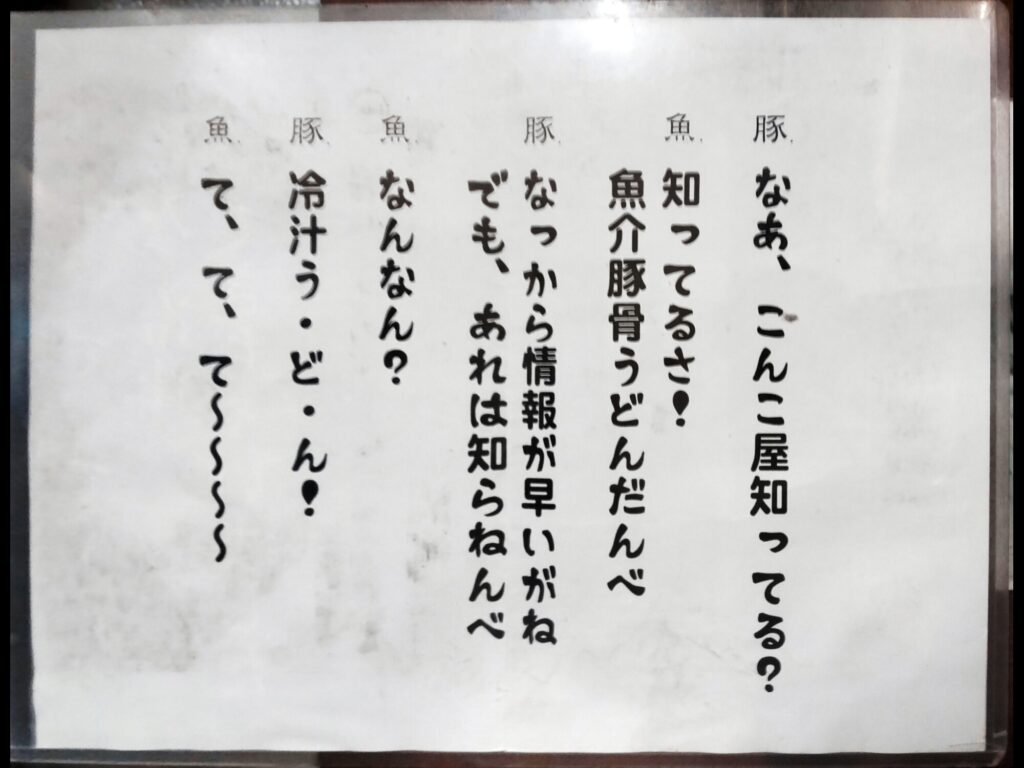 豚 なあ、こんこ屋知ってる?
魚 知ってるさ!
魚介豚骨うどんだんべ
豚 なっから情報が早いがね
でも、あれは知らねんべ
魚 なんなん?
豚 冷汁う・ど・ん!
魚 て、て、て〜〜〜〜